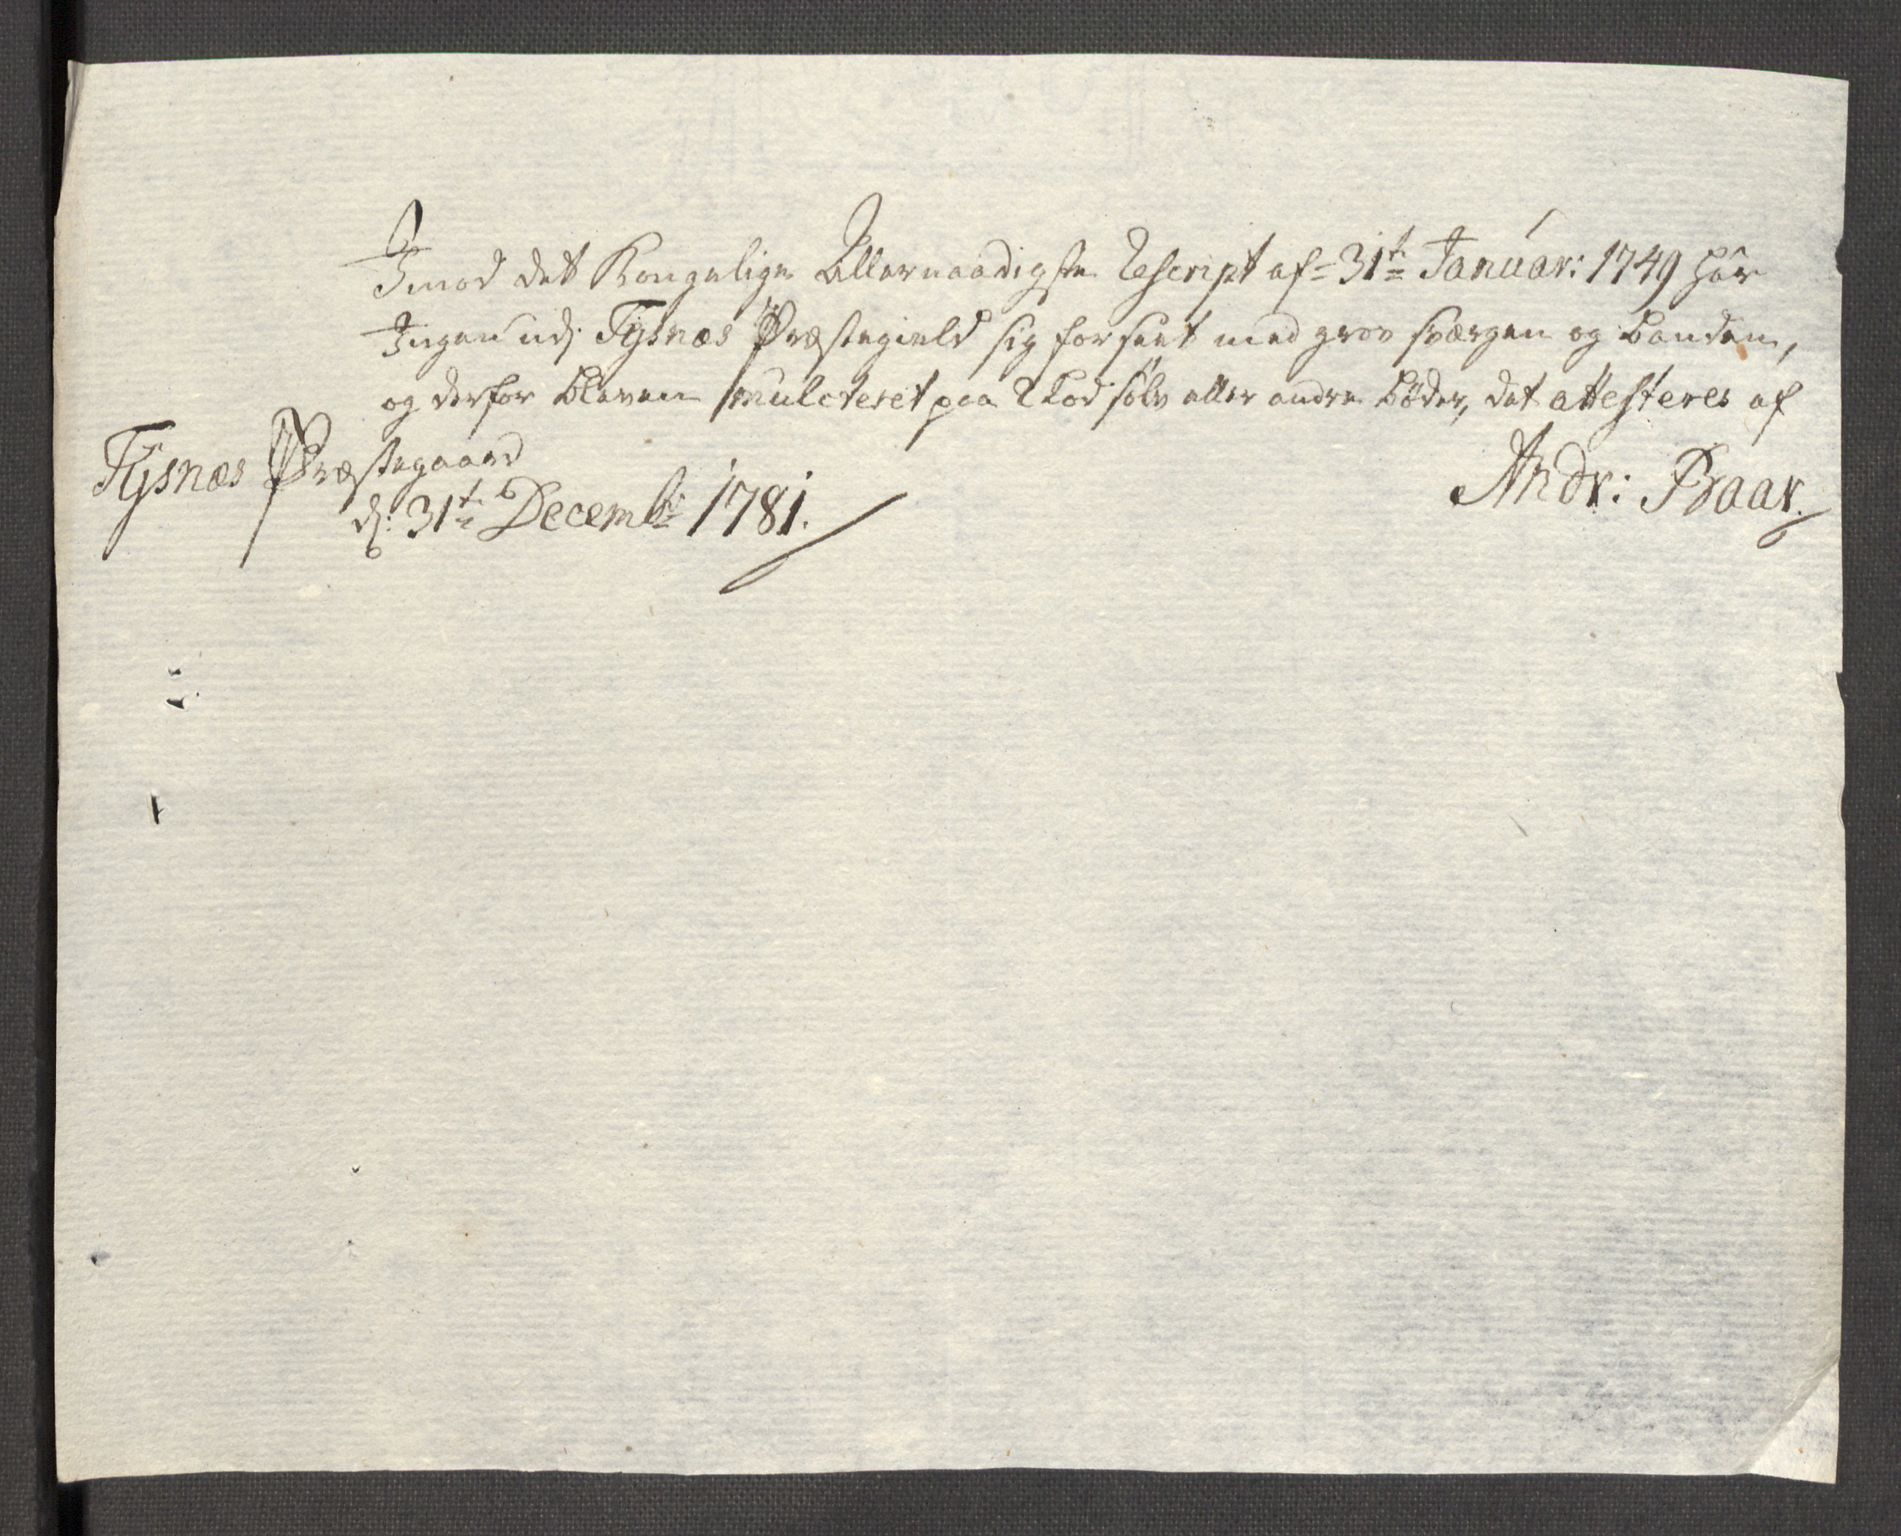 Imod det Kongelige Allernaadigste Rescript af 31te Januar: 1749 har
Ingen udj Tysnæs Præstegield sig forseet med grov sværgen og banden,
og derfor bleven mulcteret paa 2 Lod sølv eller andre bøder, det attesteres af
Tysnæs Præstegaard
d: 31te Decembr 1781.
Andr: Praar.